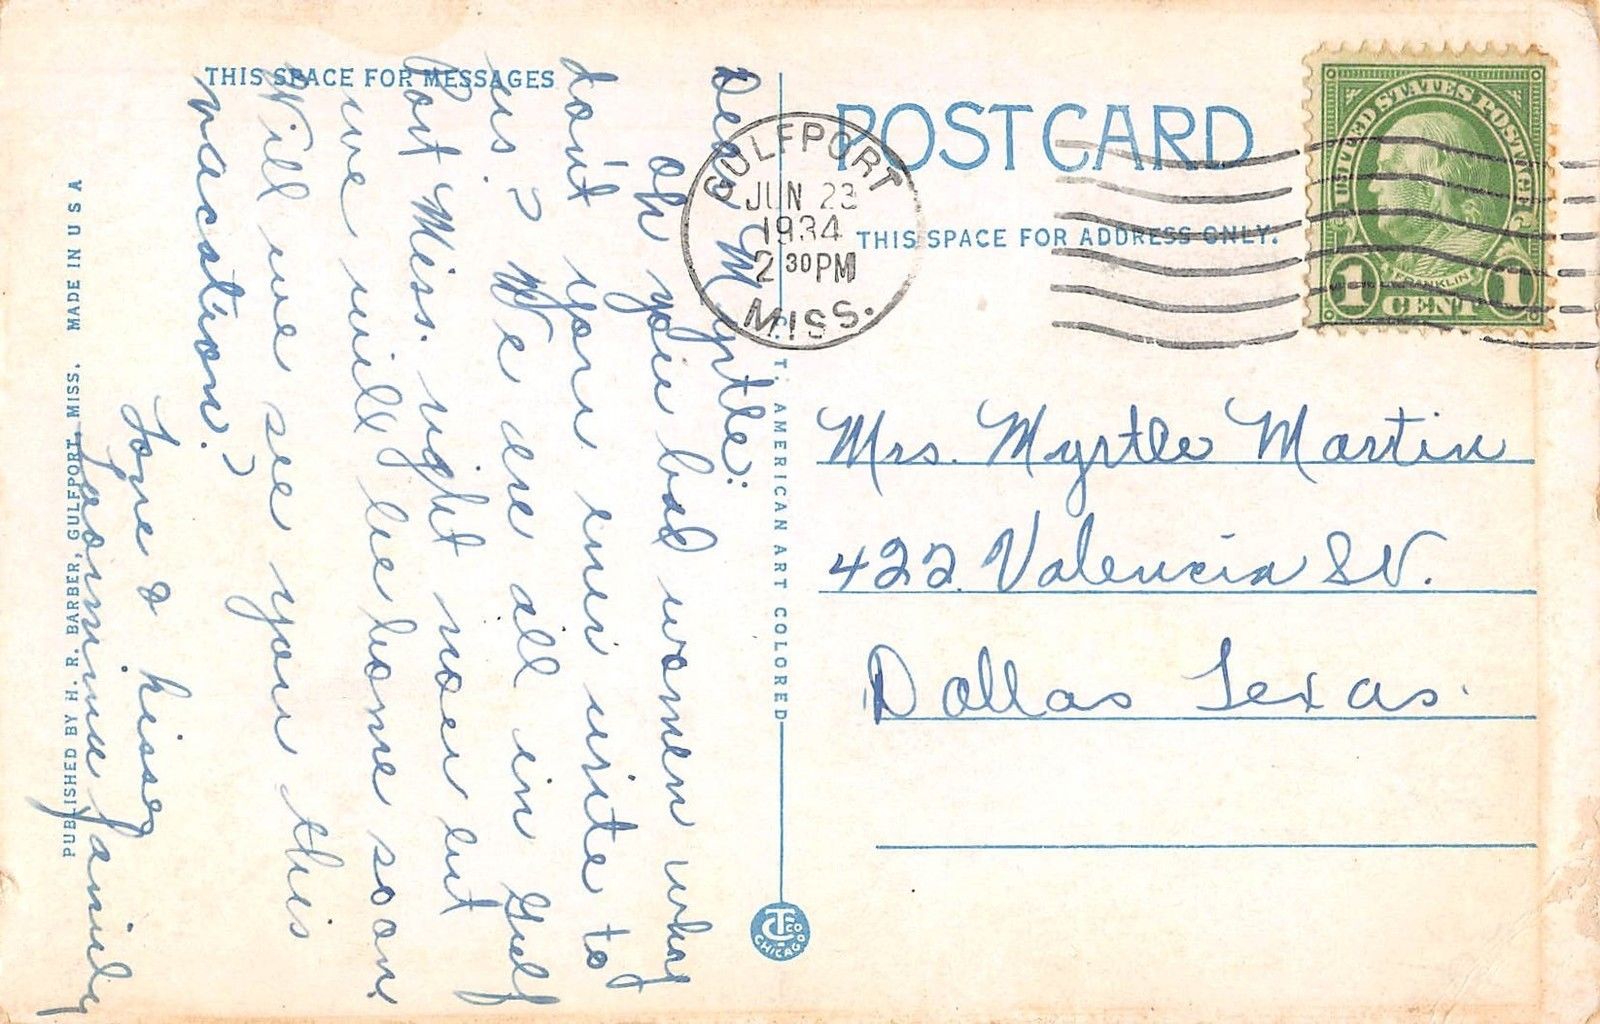 THIS SPACE FOR MESSAGES
Dear Myrtle:
Oh you bad women why
don't you ever write to
us? We are all in Gulf
port Miss. right now but
we will be home soon.
Will we see you this
vacation?
Love & kisses
family
PUBLISHED BY H. R. BARBER, GULFPORT, MISS. MADE IN U S A
C. T. AMERICAN ART COLORED
C T CO
CHICAGO
POST CARD
THIS SPACE FOR ADDRESS ONLY.
GULFPORT
JUN 23
1934
2 30 PM
MISS.
UNITED STATES POSTAGE
FRANKLIN
1 CENT 1
Mrs. Myrtle Martin
422 Valencia St.
Dallas Texas.